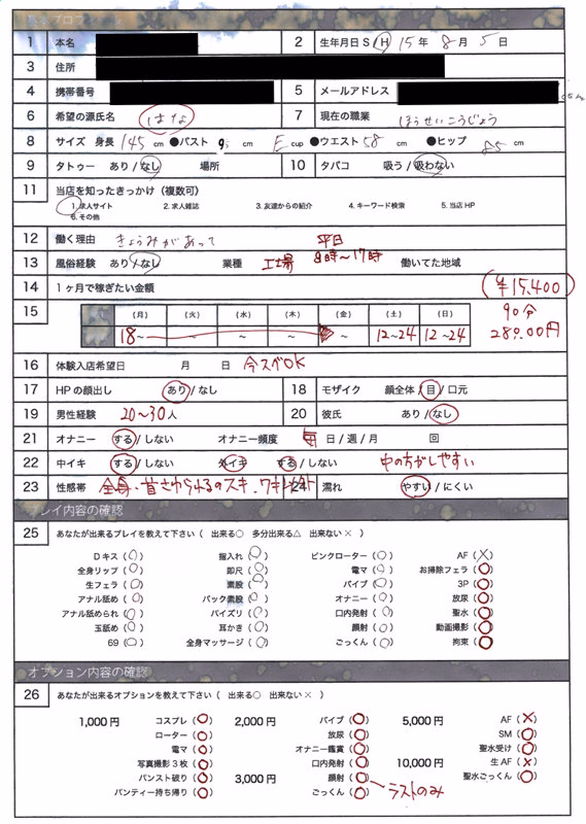 1 本名 2 生年月日 S / H 15 年 8 月 5 日
3 住所
4 携帯番号 5 メールアドレス
6 希望の源氏名 はな 7 現在の職業 ほうせいこうじょう
8 サイズ 身長 145 cm ●バスト cm E cup ●ウエスト 58 cm ●ヒップ 85 cm
9 タトゥー あり / なし 場所 10 タバコ 吸う / 吸わない
11 当店を知ったきっかけ（複数可）
1. 求人サイト 2. 求人雑誌 3. 友達からの紹介 4. キーワード検索 5. 当店 HP
6. その他
12 働く理由 きょうみがあって 平日
13 風俗経験 あり / なし 業種 工場 8時〜17時 働いてた地域
14 1ヶ月で稼ぎたい金額 (¥15,400)
15 (月) (火) (水) (木) (金) (土) (日) 90分
18~ ~ ~ ~ ~ 12~24 12~24 28000円
16 体験入店希望日 月 日 今スベOK
17 HPの顔出し あり / なし 18 モザイク 顔全体 / 目 / 口元
19 男性経験 20〜30人 20 彼氏 あり / なし
21 オナニー する / しない オナニー頻度 毎 日 / 週 / 月 回
22 中イキ する / しない 外イキ する / しない 中の方がしやすい
23 性感帯 全身・首さわられるのスキ、ワキ 24 濡れ やすい / にくい
プレイ内容の確認
25 あなたが出来るプレイを教えて下さい（ 出来る○ 多分出来る△ 出来ない× ）
Dキス (○) 指入れ (○) ピンクローター (○) AF (×)
全身リップ (○) 即尺 (○) 電マ (○) お掃除フェラ (○)
生フェラ (○) 素股 (○) バイブ (○) 3P (○)
アナル舐め (○) バック素股 (○) オナニー (○) 放尿 (○)
アナル舐められ (○) パイズリ (○) 口内発射 (○) 聖水 (○)
玉舐め (○) 耳かき (○) 顔射 (○) 動画撮影 (○)
69 (○) 全身マッサージ (○) ごっくん (○) 拘束 (○)
オプション内容の確認
26 あなたが出来るオプションを教えて下さい（ 出来る○ 出来ない× ）
1,000円 コスプレ (○) 2,000円 バイブ (○) 5,000円 AF (×)
ローター (○) 放尿 (○) SM (○)
電マ (○) オナニー鑑賞 (○) 聖水受け (○)
写真撮影3枚 (○) 口内発射 (○) 10,000円 生AF (×)
パンスト破り (○) 3,000円 顔射 (○) 聖水ごっくん (○)
パンティー持ち帰り (○) ごっくん (○) ラストのみ